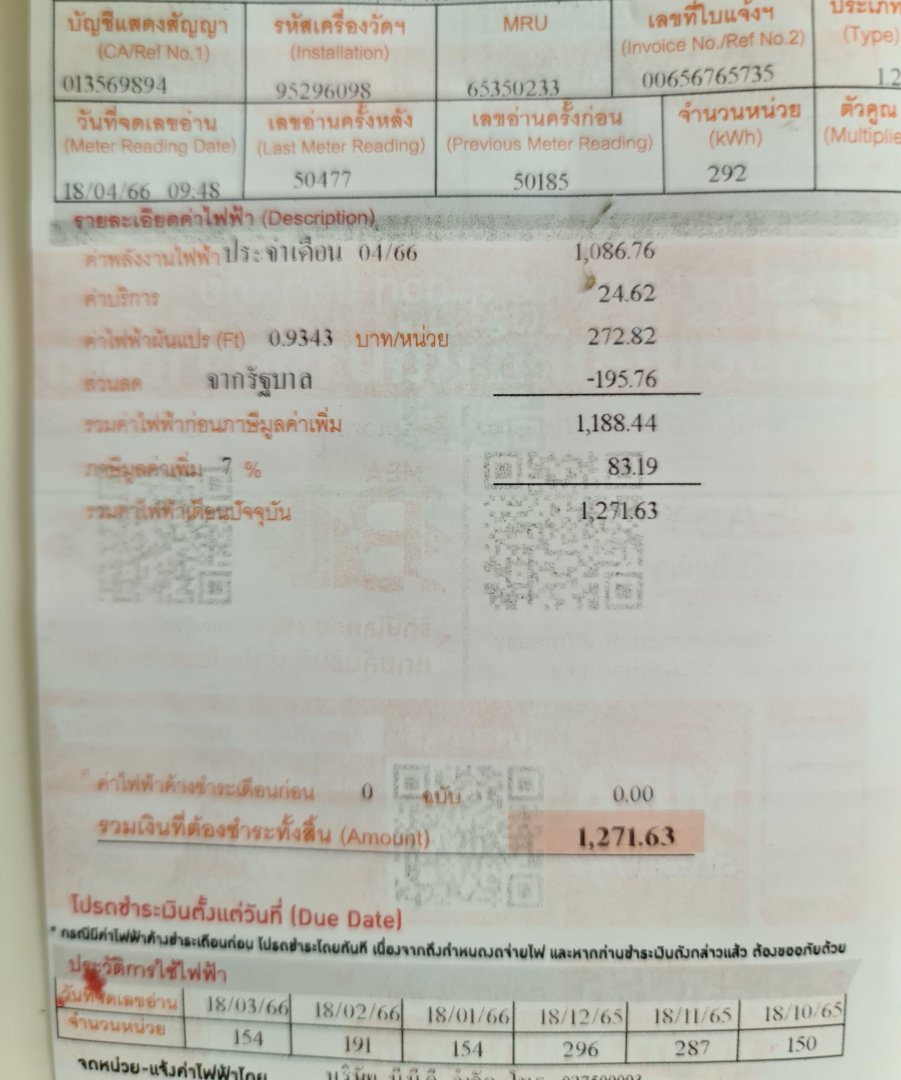 บัญชีแสดงสัญญา รหัสเครื่องวัดฯ MRU เลขที่ใบแจ้งฯ ประเภท
(CA/Ref No.1) (Installation) (Invoice No./Ref No.2) (Type)
013569894 95296098 65350233 00656765735 1.2
วันที่จดเลขอ่าน เลขอ่านครั้งหลัง เลขอ่านครั้งก่อน จำนวนหน่วย ตัวคูณ
(Meter Reading Date) (Last Meter Reading) (Previous Meter Reading) (kWh) (Multiplie
18/04/66 09:48 50477 50185 292
รายละเอียดค่าไฟฟ้า (Description)
ค่าพลังงานไฟฟ้า ประจำเดือน 04/66 1,086.76
ค่าบริการ 24.62
ค่าไฟฟ้าผันแปร (Ft) 0.9343 บาท/หน่วย 272.82
ส่วนลด จากรัฐบาล -195.76
รวมค่าไฟฟ้าก่อนภาษีมูลค่าเพิ่ม 1,188.44
ภาษีมูลค่าเพิ่ม 7 % 83.19
รวมค่าไฟฟ้าเดือนปัจจุบัน 1,271.63
* ค่าไฟฟ้าค้างชำระเดือนก่อน 0 ฉบับ 0.00
รวมเงินที่ต้องชำระทั้งสิ้น (Amount) 1,271.63
โปรดชำระเงินตั้งแต่วันที่ (Due Date)
* กรณีมีค่าไฟฟ้าค้างชำระเดือนก่อน โปรดชำระโดยทันที เนื่องจากถึงกำหนดงดจ่ายไฟ และหากท่านชำระเงินดังกล่าวแล้ว ต้องขออภัยด้วย
ประวัติการใช้ไฟฟ้า
วันที่จดเลขอ่าน 18/03/66 18/02/66 18/01/66 18/12/65 18/11/65 18/10/65
จำนวนหน่วย 154 191 154 296 287 150
จดหน่วย-แจ้งค่าไฟฟ้าโดย